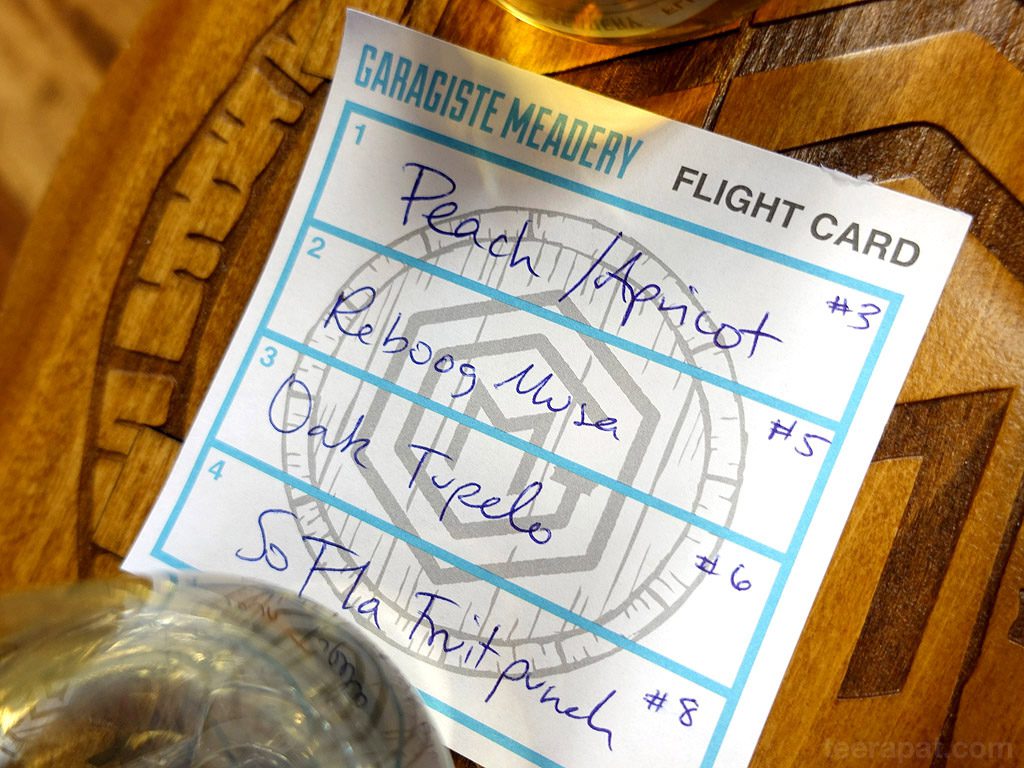 GARAGISTE MEADERY
FLIGHT CARD
1
Peach / Apricot #3
2
Reboog Musa #5
3
Oak Tupelo #6
4
So Fla Fruit punch #8
teerapat.com